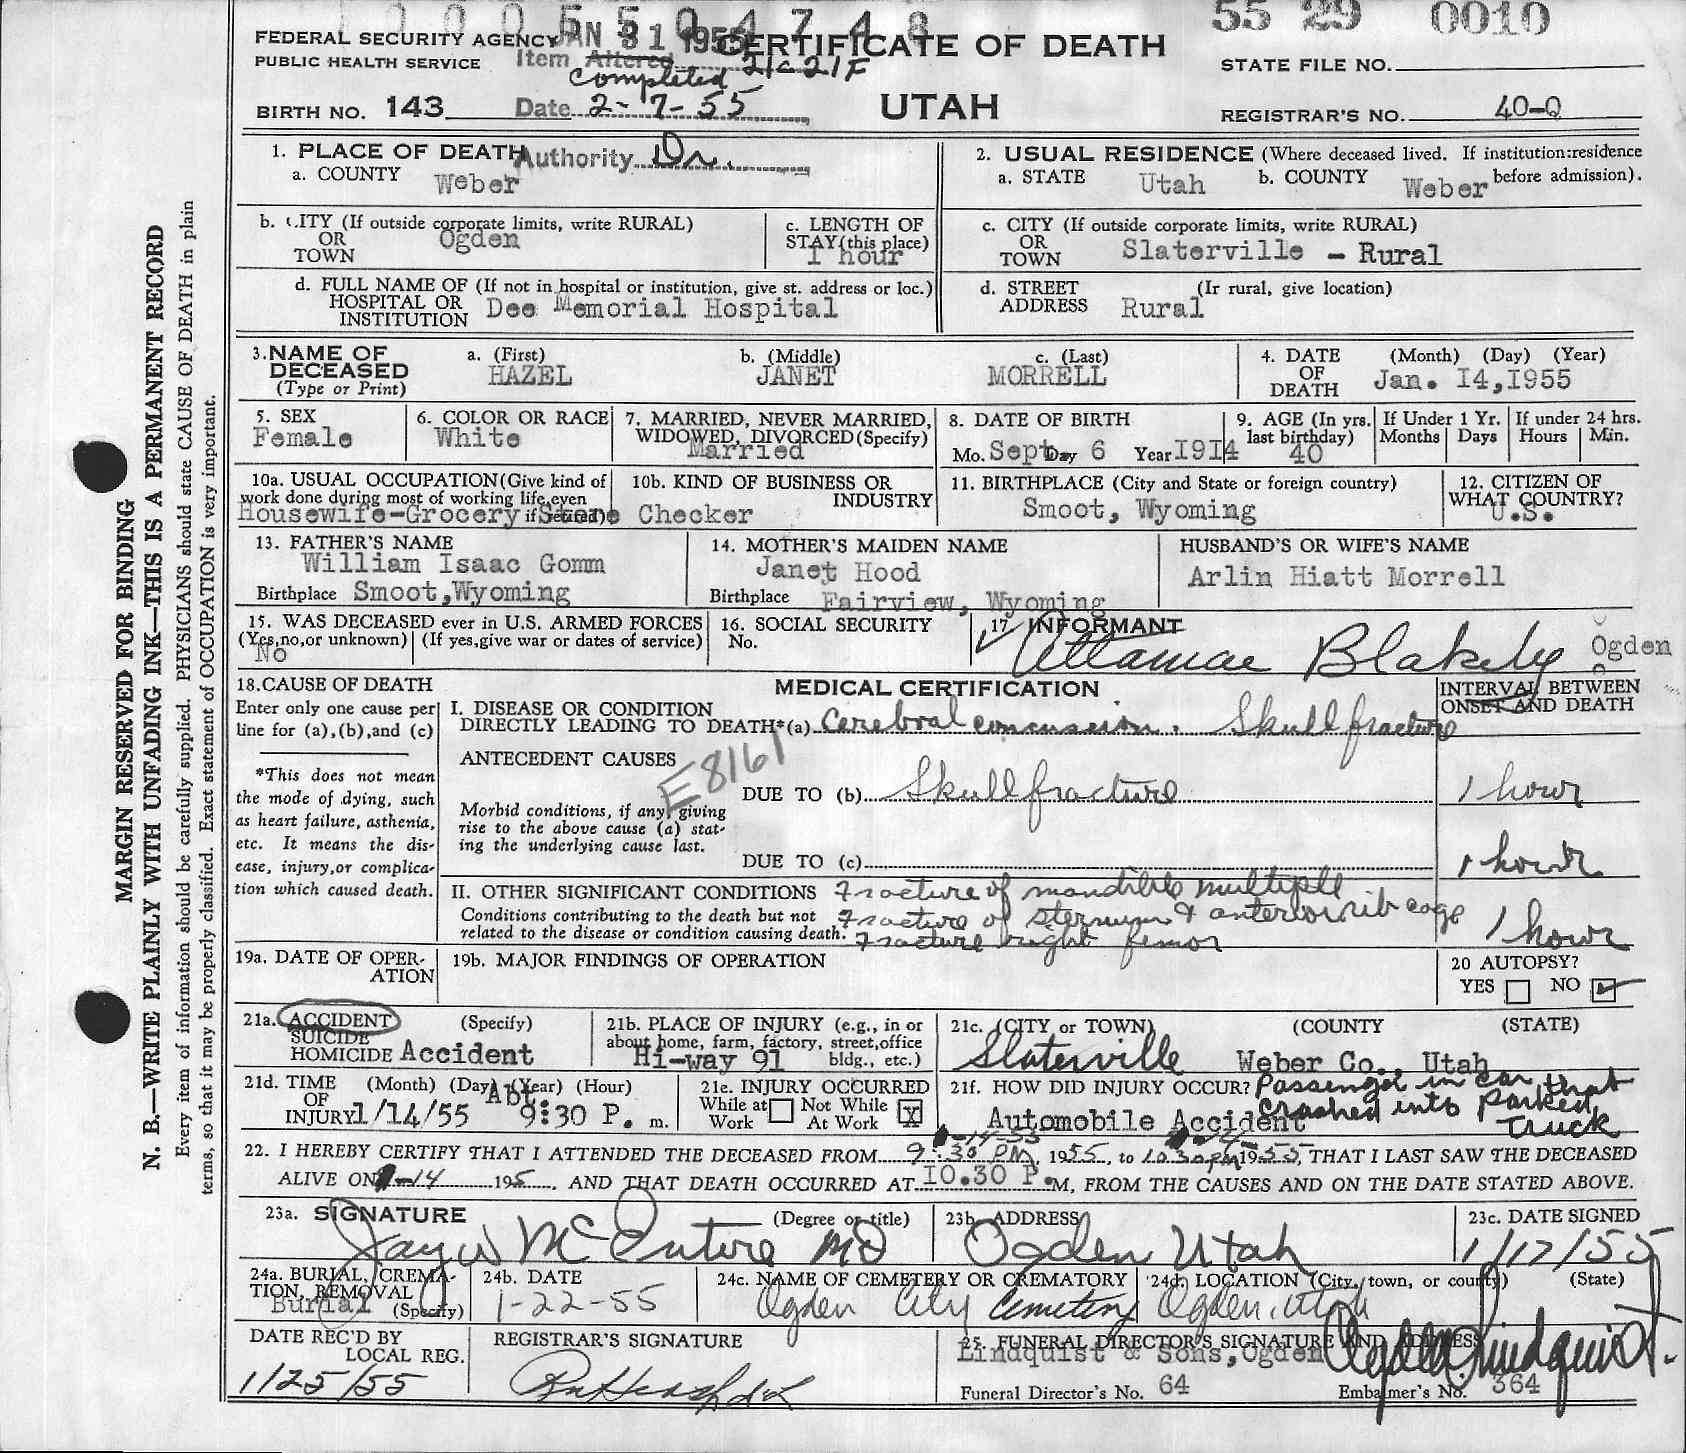 1 0 0 0 5 5 0 4 7 4 8
55 29 0010
FEDERAL SECURITY AGENCY JAN 31 1955 CERTIFICATE OF DEATH
PUBLIC HEALTH SERVICE Item Altered 21c 21F STATE FILE NO.
Completed
BIRTH NO. 143 Date 2-7-55 UTAH REGISTRAR'S NO. 40-Q
1. PLACE OF DEATH Authority Dr.
a. COUNTY Weber
2. USUAL RESIDENCE (Where deceased lived. If institution:residence before admission).
a. STATE Utah b. COUNTY Weber
b. CITY (If outside corporate limits, write RURAL)
OR
TOWN Ogden
c. LENGTH OF
STAY (this place)
1 hour
c. CITY (If outside corporate limits, write RURAL)
OR
TOWN Slaterville - Rural
d. FULL NAME OF (If not in hospital or institution, give st. address or loc.)
HOSPITAL OR
INSTITUTION Dee Memorial Hospital
d. STREET (Ir rural, give location)
ADDRESS Rural
3. NAME OF
DECEASED
(Type or Print)
a. (First) b. (Middle) c. (Last)
HAZEL JANET MORRELL
4. DATE (Month) (Day) (Year)
OF
DEATH Jan. 14,1955
5. SEX
Female
6. COLOR OR RACE
White
7. MARRIED, NEVER MARRIED,
WIDOWED, DIVORCED (Specify)
Married
8. DATE OF BIRTH
Mo. Sept Day 6 Year 1914
9. AGE (In yrs.
last birthday)
40
If Under 1 Yr.
Months Days
If under 24 hrs.
Hours Min.
10a. USUAL OCCUPATION (Give kind of
work done during most of working life, even
if retired)
Housewife-Grocery Store Checker
10b. KIND OF BUSINESS OR
INDUSTRY
11. BIRTHPLACE (City and State or foreign country)
Smoot, Wyoming
12. CITIZEN OF
WHAT COUNTRY?
U.S.
13. FATHER'S NAME
William Isaac Gomm
Birthplace Smoot, Wyoming
14. MOTHER'S MAIDEN NAME
Janet Hood
Birthplace Fairview, Wyoming
HUSBAND'S OR WIFE'S NAME
Arlin Hiatt Morrell
15. WAS DECEASED ever in U.S. ARMED FORCES
(Yes,no,or unknown) (If yes,give war or dates of service)
No
16. SOCIAL SECURITY
No.
17 INFORMANT
Blakely Ogden
18. CAUSE OF DEATH
Enter only one cause per
line for (a),(b),and (c)
*This does not mean
the mode of dying, such
as heart failure, asthenia,
etc. It means the dis-
ease, injury,or complica-
tion which caused death.
MEDICAL CERTIFICATION
INTERVAL BETWEEN
ONSET AND DEATH
I. DISEASE OR CONDITION
DIRECTLY LEADING TO DEATH*(a) Cerebral concussion. Skull fracture
ANTECEDENT CAUSES
E8161
DUE TO (b) Skull fracture 1 hour
Morbid conditions, if any, giving
rise to the above cause (a) stat-
ing the underlying cause last.
DUE TO (c) 1 hour
II. OTHER SIGNIFICANT CONDITIONS Fracture of mandible multiple
Conditions contributing to the death but not Fracture of sternum & anterior rib cage
related to the disease or condition causing death: Fracture right femor
1 hour
19a. DATE OF OPER-
ATION
19b. MAJOR FINDINGS OF OPERATION
20 AUTOPSY?
YES NO
21a. ACCIDENT (Specify)
SUICIDE
HOMICIDE Accident
21b. PLACE OF INJURY (e.g., in or
about home, farm, factory, street,office
bldg., etc.)
Hi-way 91
21c. (CITY or TOWN) (COUNTY (STATE)
Slaterville Weber Co., Utah
21d. TIME (Month) (Day) (Year) (Hour)
OF
INJURY 1/14/55 Abt. 9:30 P. m.
21e. INJURY OCCURRED
While at Work Not While At Work X
21f. HOW DID INJURY OCCUR? Passenger in car that
crashed into parked
truck
Automobile Accident
1-14-55 1-14-
22. I HEREBY CERTIFY THAT I ATTENDED THE DECEASED FROM 9:30 PM, 1955, to 10 30 PM 1955, THAT I LAST SAW THE DECEASED
ALIVE ON 1-14 195 , AND THAT DEATH OCCURRED AT 10.30 P.M, FROM THE CAUSES AND ON THE DATE STATED ABOVE.
23a. SIGNATURE (Degree or title)
Jay W McEntire MD
23b. ADDRESS
Ogden Utah
23c. DATE SIGNED
1/17/55
24a. BURIAL, CREMA-
TION, REMOVAL
(Specify)
Burial
24b. DATE
1-22-55
24c. NAME OF CEMETERY OR CREMATORY
Ogden City Cemetery
24d. LOCATION (City, town, or county) (State)
Ogden, Utah
DATE REC'D BY
LOCAL REG.
1/25/55
REGISTRAR'S SIGNATURE
25. FUNERAL DIRECTOR'S SIGNATURE AND ADDRESS
Lindquist & Sons, Ogden
Funeral Director's No. 64 Embalmer's No. 364
MARGIN RESERVED FOR BINDING
N. B.—WRITE PLAINLY WITH UNFADING INK—THIS IS A PERMANENT RECORD
Every item of information should be carefully supplied. PHYSICIANS should state CAUSE OF DEATH in plain
terms, so that it may be properly classified. Exact statement of OCCUPATION is very important.